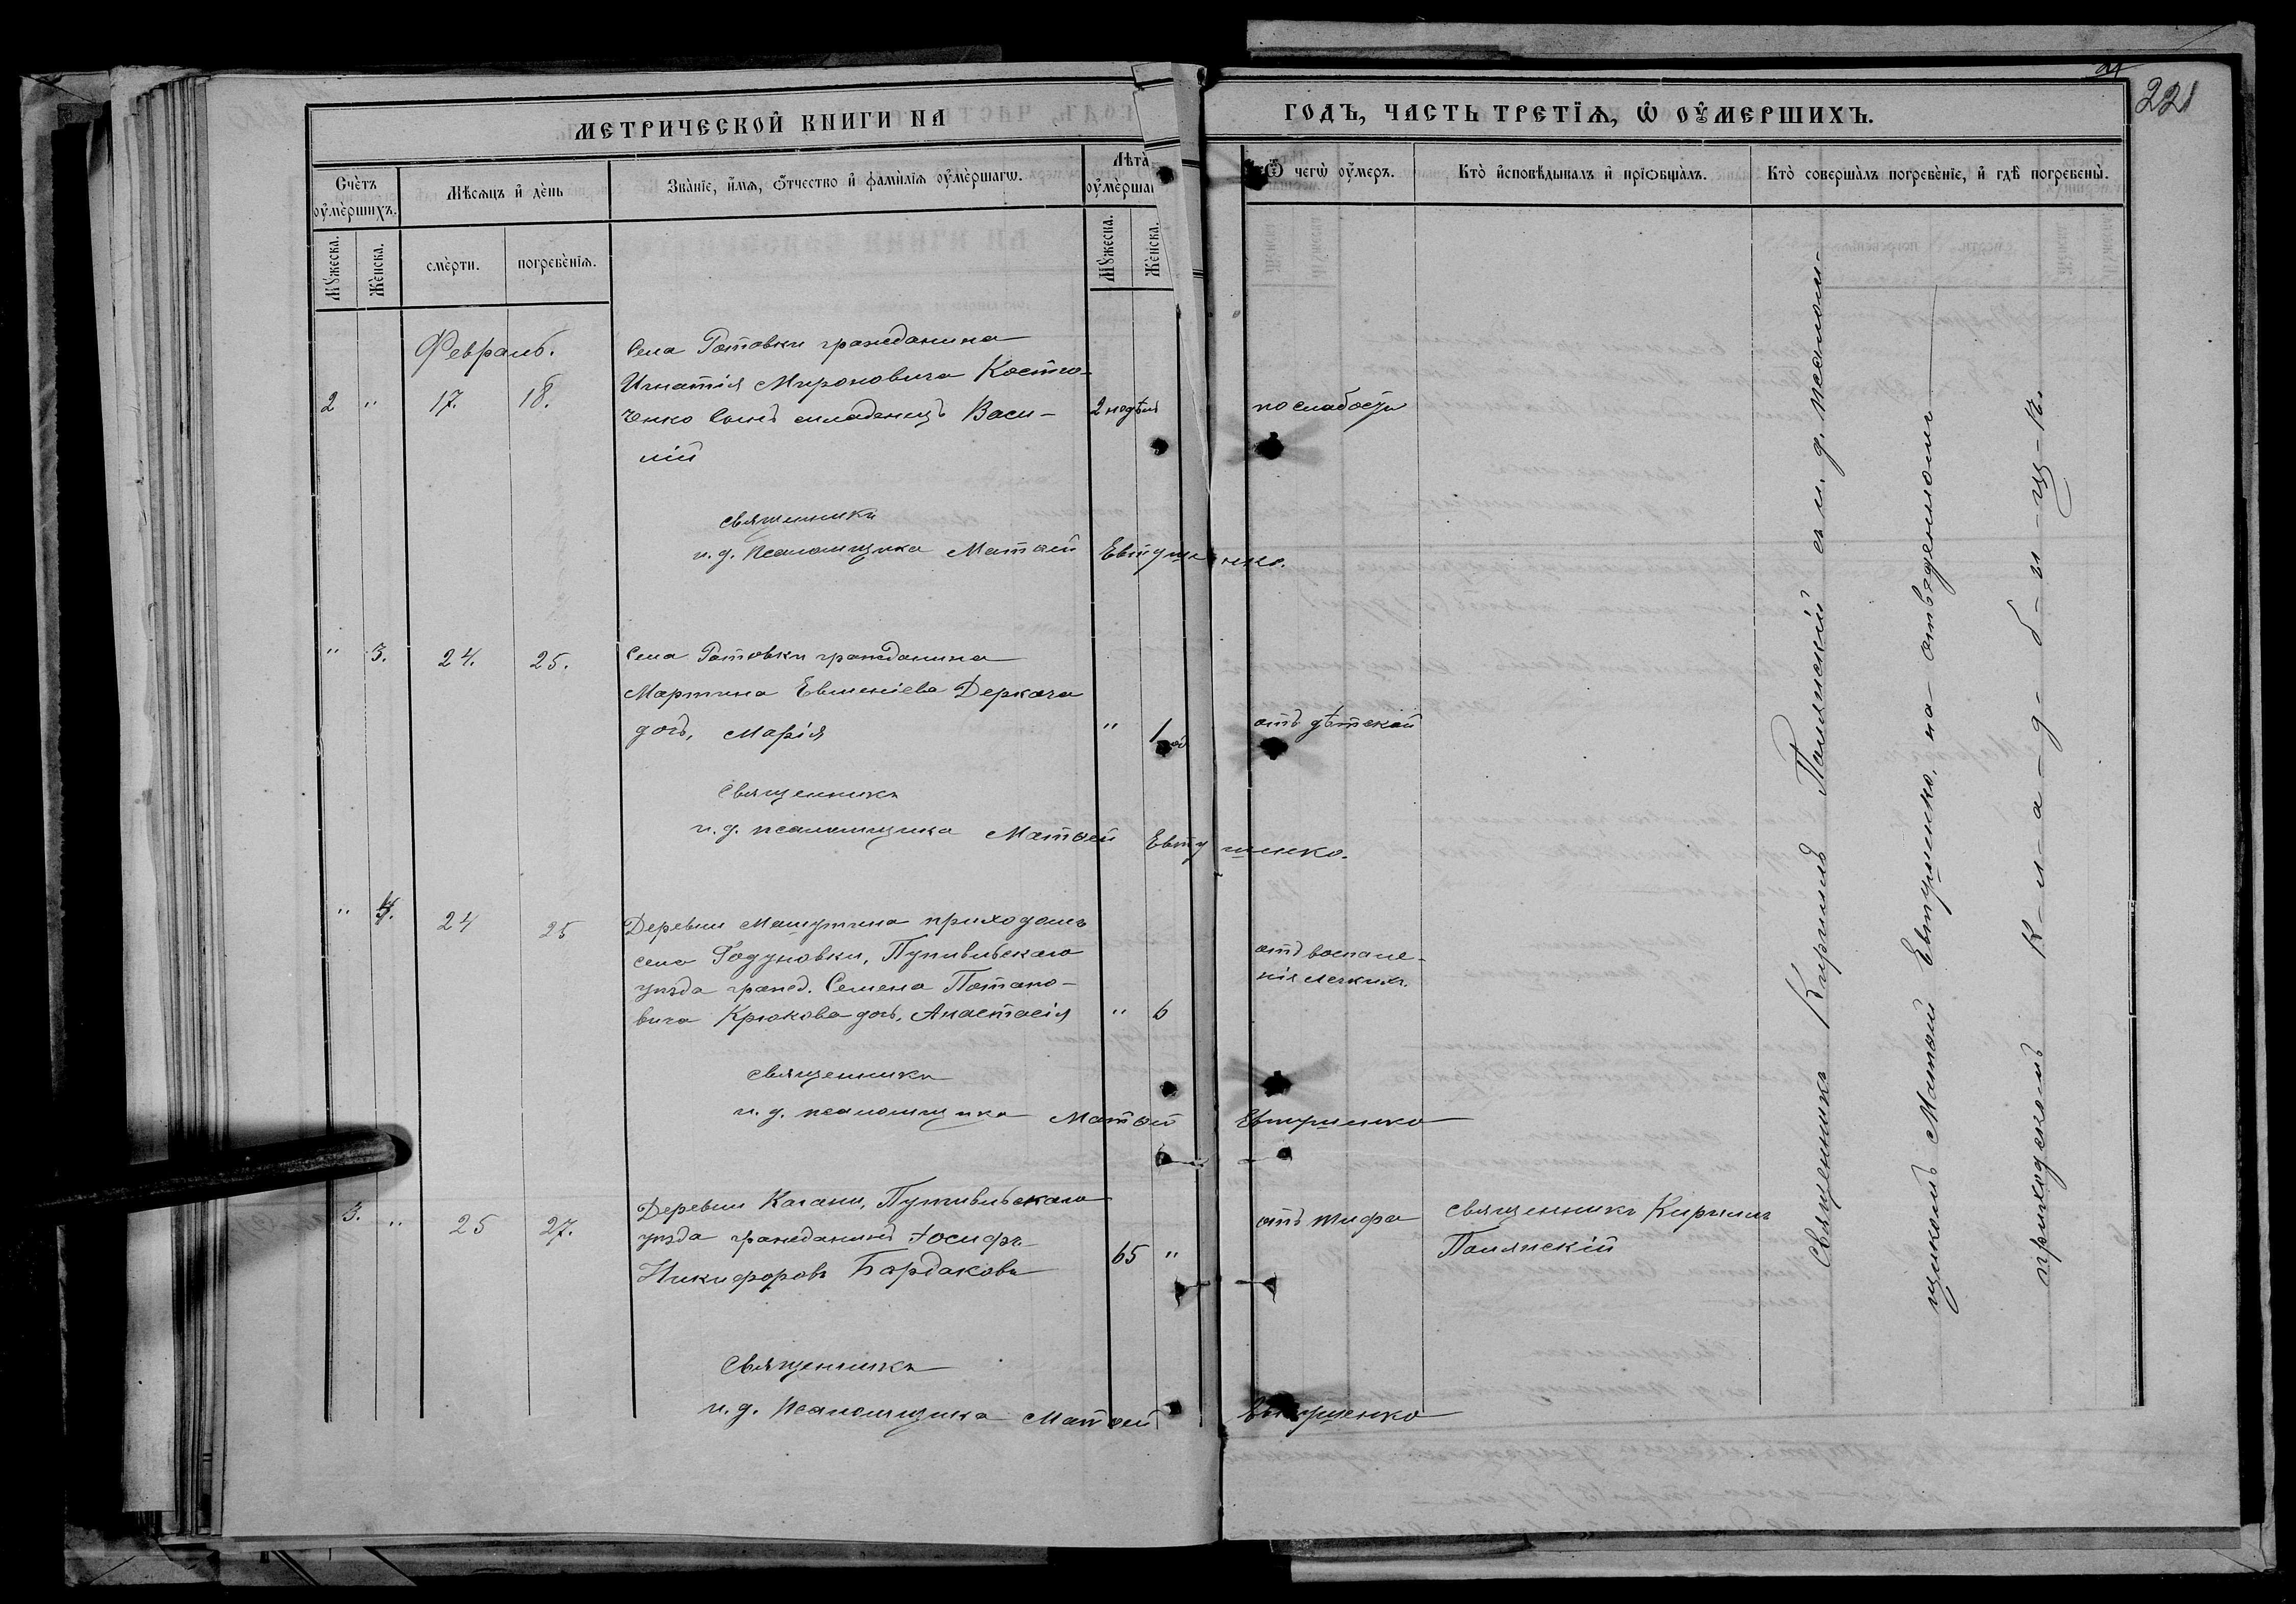 221
МЕТРИЧЕСКОЙ КНИГИ НА ГОДЪ, ЧАСТЬ ТРЕТІѦ, Ѡ ОУМЕРШИХЪ.
Счетъ оумершихъ.
Мѣсѧцъ и день
Званіе, имѧ, ѿчество и фамиліѧ оумершагѡ.
Лѣта
Ѿ чегѡ оумеръ.
Кто исповѣдывалъ и пріобщалъ.
Кто совершалъ погребеніе, и гдѣ погребены.
Мужеска.
Женска.
смерти.
погребеніѧ.
Мужеска.
Женска.
Февраль.
2 " 17. 18.
Села Ротовки гражданина
Игнатія Мироновича Костю-
ченко сынъ младенецъ Васи-
лій
2 недѣль
по слабости
Священникъ
и. д. псаломщика Матѳей Евтушенко.
" 3. 24. 25.
Села Ротовки гражданина
Мартина Евменіева Деркача
дочь, Марія
" 1
отъ дѣтской
Священникъ
и. д. псаломщика Матѳей Евтушенко.
" 4. 24 25
Деревни Машутина приходомъ
села Годуновки, Путивльскаго
уѣзда гражд. Семена Потапо-
вича Крюкова дочь, Анастасія
" 6
отъ воспале-
нія легкихъ.
Священникъ
и. д. псаломщика Матѳей Евтушенко
3. " 25 27.
Деревни Кагани, Путивльскаго
уѣзда гражданинъ Іосифъ
Никифоровъ Бардаковъ
65 "
отъ тифа
Священникъ Кириллъ
Полянскій
Священникъ
и. д. псаломщика Матѳей Евтушенко
Священникъ Кириллъ Полянскій съ и. д. псалом-
щикомъ Матѳей Евтушенко, на отведенномъ
приходскомъ к-л-а-д-б-и-щ-ѣ.